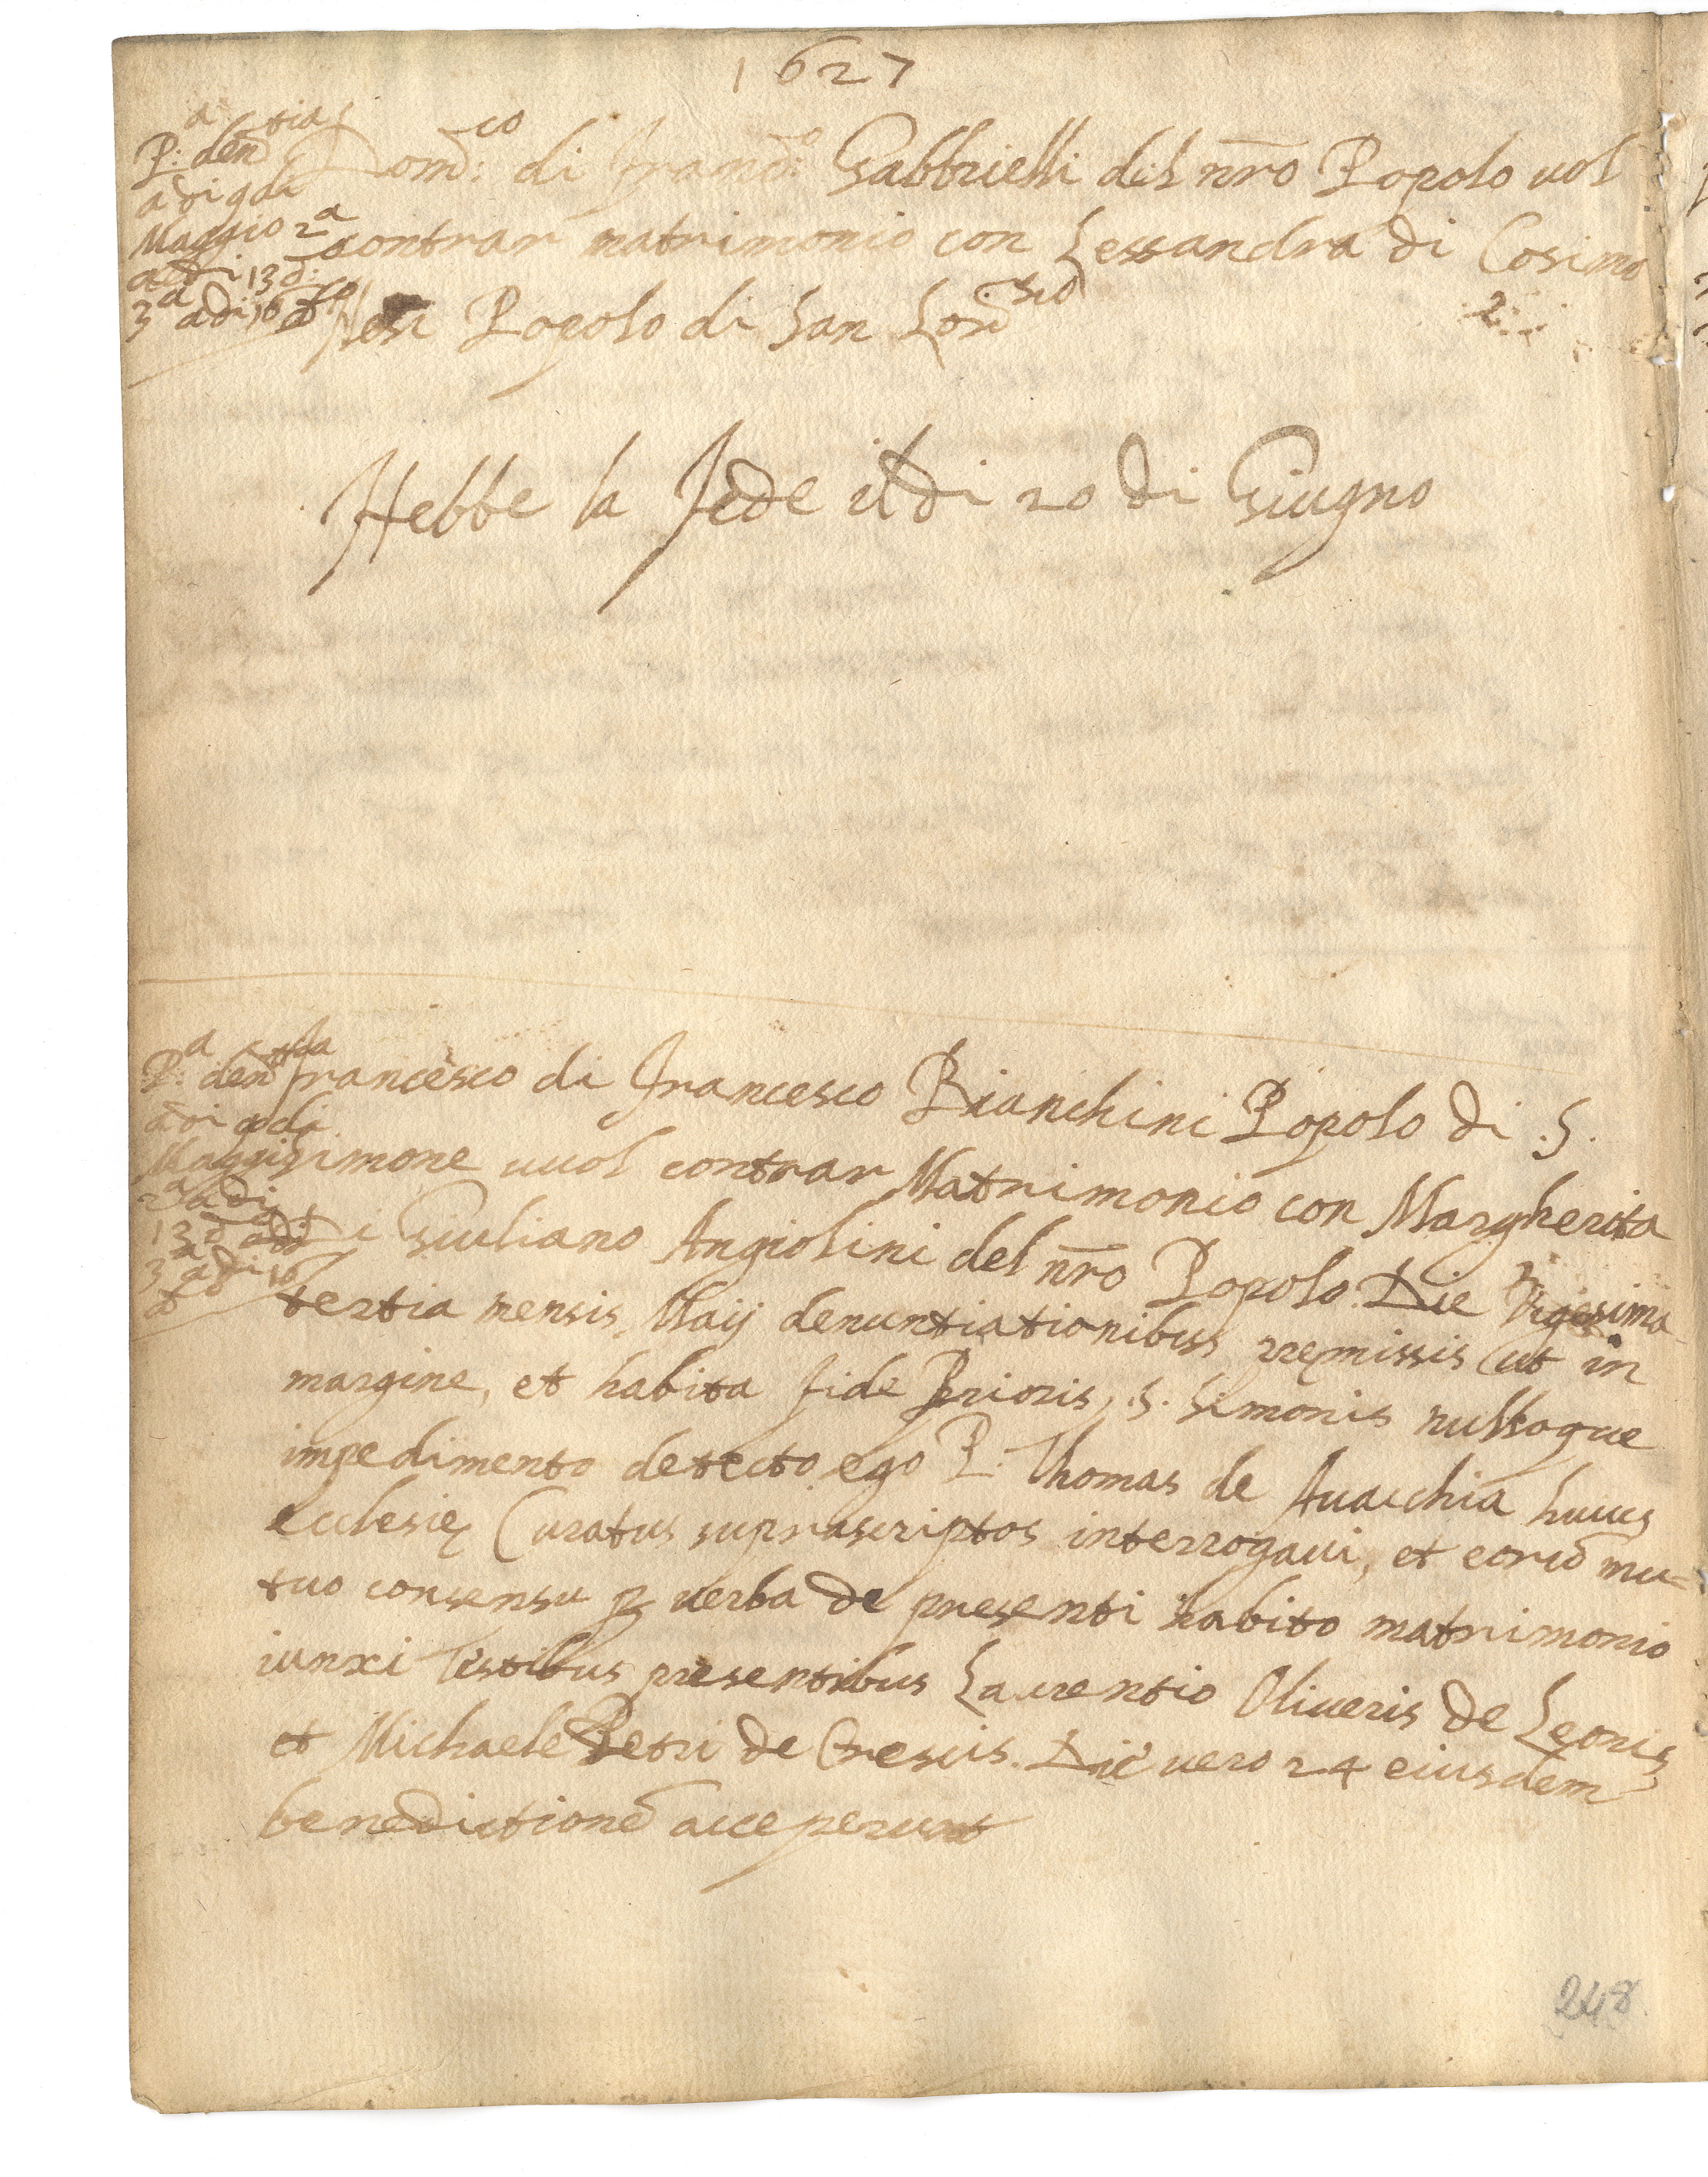 1627
P:a dentia
adi 9 di
Maggio 2a
adi 13 d:
3a adi 16 do
Dom:co di Franco: Gabbrielli del nro Popolo uol
contrar matrimonio con Lessandra di Cosimo
Popolo di San Lorzo
Hebbe la fede il di 20 di Giugno
P:a dentia
adi 9 di
Maggio
2a adi
13 d
3a adi 16
do
Francesco di Francesco Bianchini Popolo di .S.
Simone uuol contrar Matrimonio con Margherita
di Giuliano Angiolini del nro Popolo. Die Vigesima
tertia mensis Maij denuntiationibus premissis ut in
margine, et habita fide Prioris .S. Simonis nulloque
impedimento detecto ego P. Thomas de Auacchia huius
ecclesię Curatus suprascriptos interrogaui, et eorū mu=
tuo consensu p uerba de presenti habito matrimonio
iunxi Testibus presentibus Laurentio Oliueris de Leonis
et Michaele Petri de Crescis. Die uero 24 eiusdem
benedictionē acceperunt
248